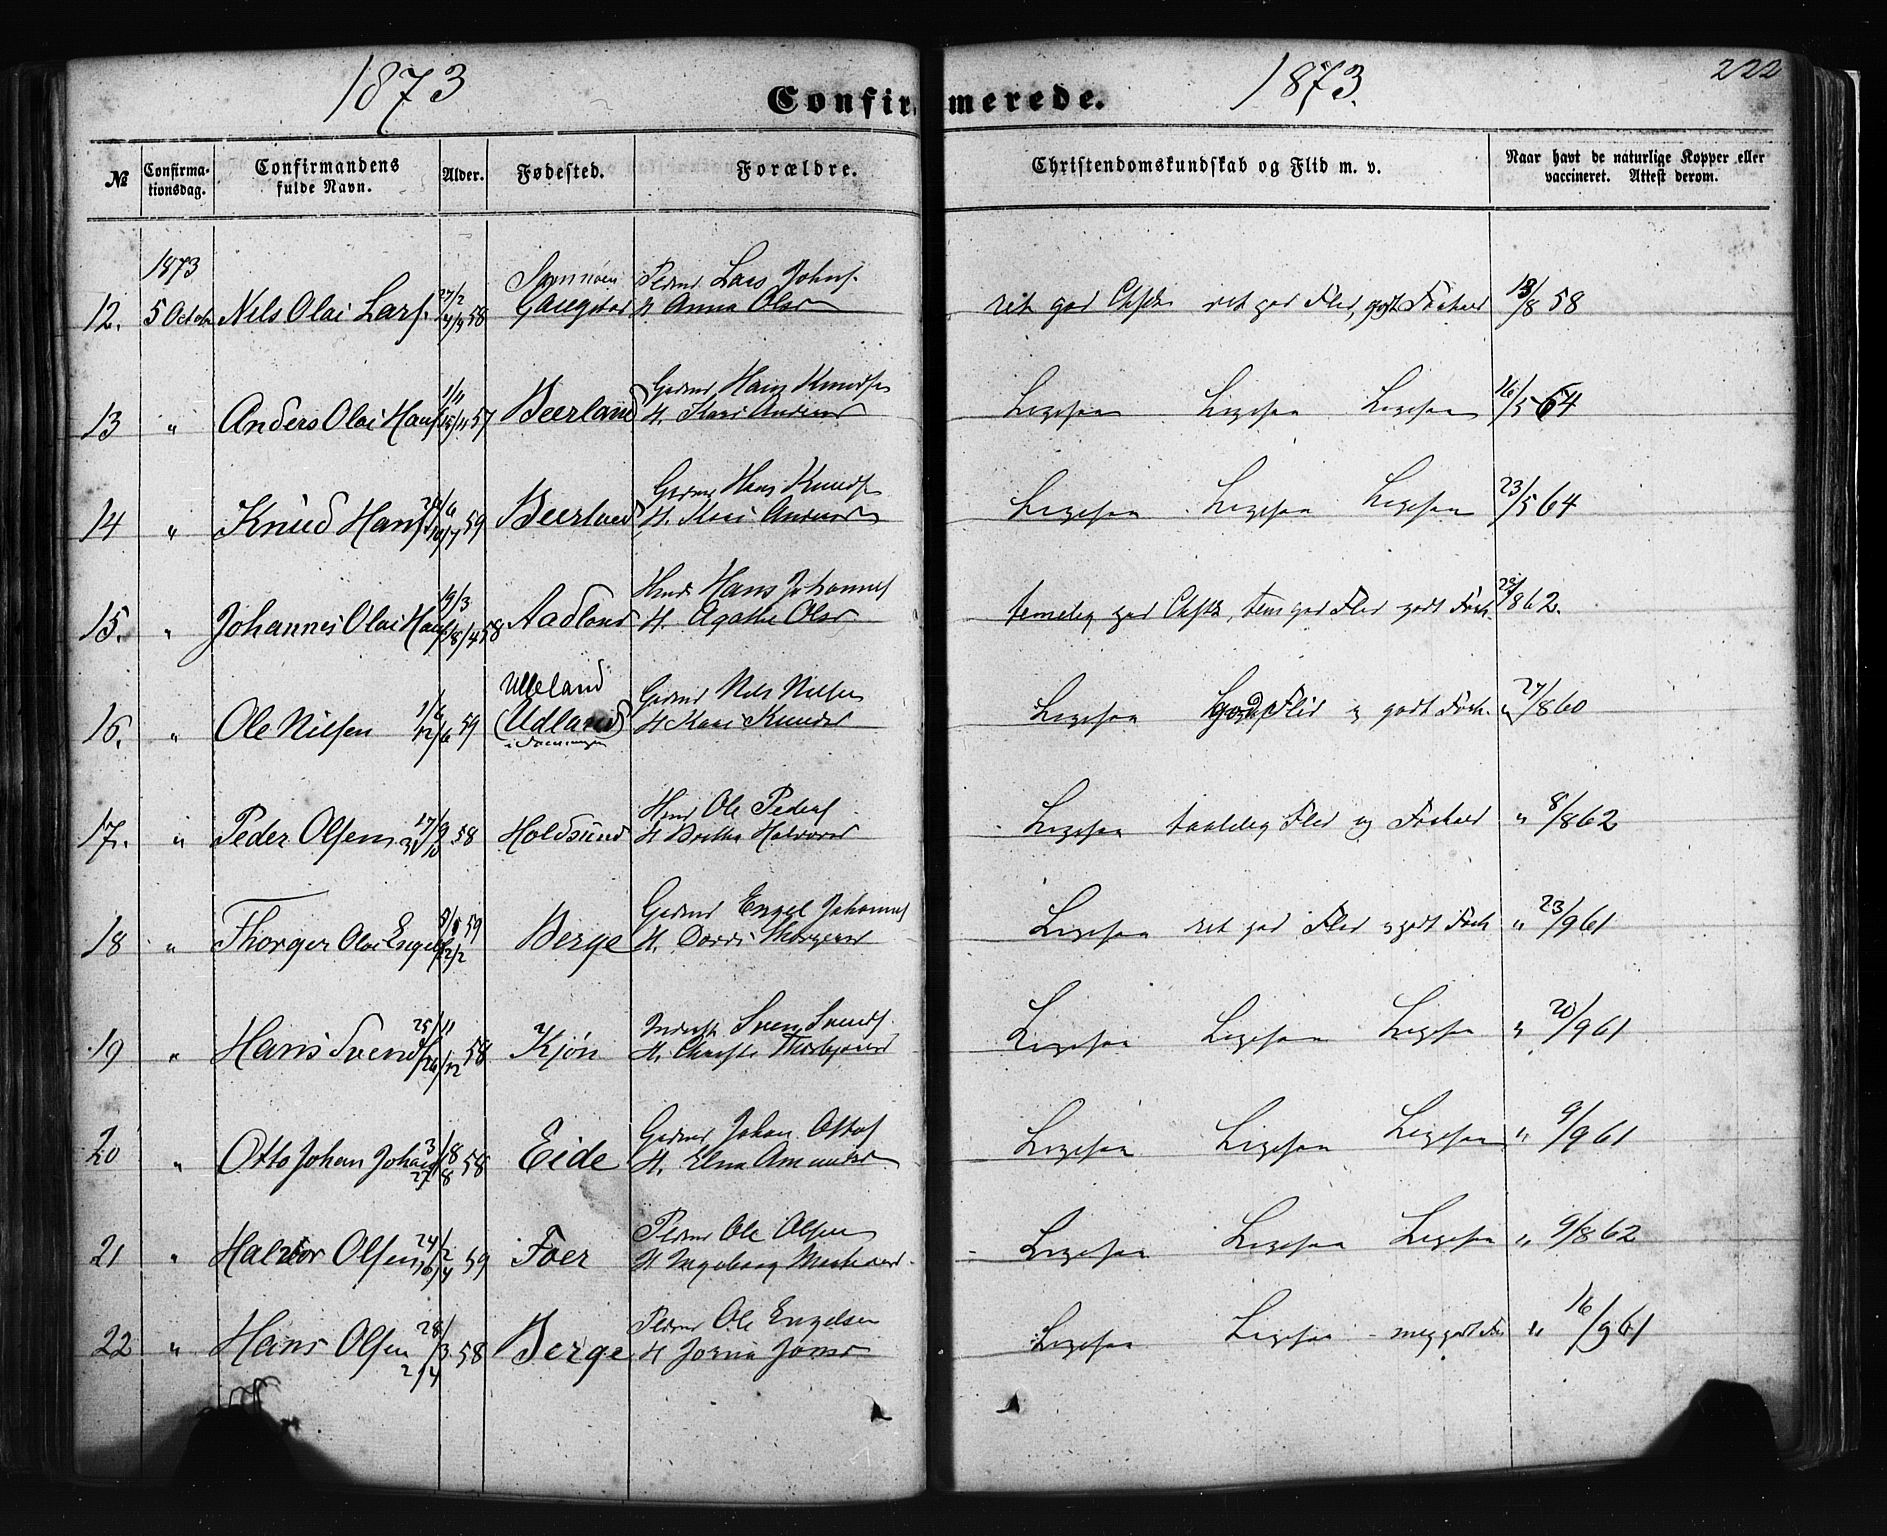 1873
Confirmerede.
1873.
222
№
Confirma-
tionsdag.
Confirmandens
fulde Navn.
Alder.
Fødested.
Forældre.
Christendomskundskab og Flid m. v.
Naar havt de naturlige Kopper eller
vaccineret. Attest derom.
1873
12. 5 Octob Nils Olai Larss. 27/2 4/4 58 Gaugstad Lars Johns. H. Anna Olsd ret god ret god Flid, godt Forhold 13/8 58
13 " Anders Olai Hans 1/11 15/11 57 Beerland Gdmd Hans Knuds H. Kari Andersd Ligesaa Ligesaa Ligesaa 16/5 64
14 " Knud Hans 24/6 10/7 59 Beerland Gdmd Hans Knuds H. Kari Andersd Ligesaa Ligesaa Ligesaa 23/5 64
15. " Johannes Olai Hans 19/3 58 Aadland Hmd Hans Johannes H. Agathe Olsd temelig god tem god Flid godt Forh. 23/8 62.
16. " Ole Nilsen 1/6 12/6 59 Ulleland (Udland) Gdmd Nils Nilsen H Kari Knudsd Ligesaa god Flid og godt Forh. " 27/8 60
17. " Peder Olsen 17/9 31/10 58 Holdsund Hmd Ole Peders H Halvorsd Ligesaa taalelig Flid og Forhold " 8/8 62
18 " Thorger Olai Engels 59 2/2 Berge Gdmd Engel Johannes H. Dordi Thorgersd Ligesaa ret god Flid og godt Forh " 23/9 61
19 " Hans Svends 25/11 26/12 58 Kjøn Sven Svends. H. Christi Thorbjørnsd Ligesaa Ligesaa Ligesaa " 20/9 61
20 " Otto Johan Johans 3/8 27/8 58 Eide Gdmd Johan Ottos H. Elna Amundsd Ligesaa Ligesaa Ligesaa " 9/9 61
21 " Halvor Olsen 24/2 59 Foer Pldmd Ole Olsen H Ingeborg Ligesaa Ligesaa Ligesaa " 9/8 62
22 " Hans Olsen 28/3 58 2/4 Berge Pldmd Ole Engelsen H Jonsd Ligesaa Ligesaa meg godt For " 16/9 61